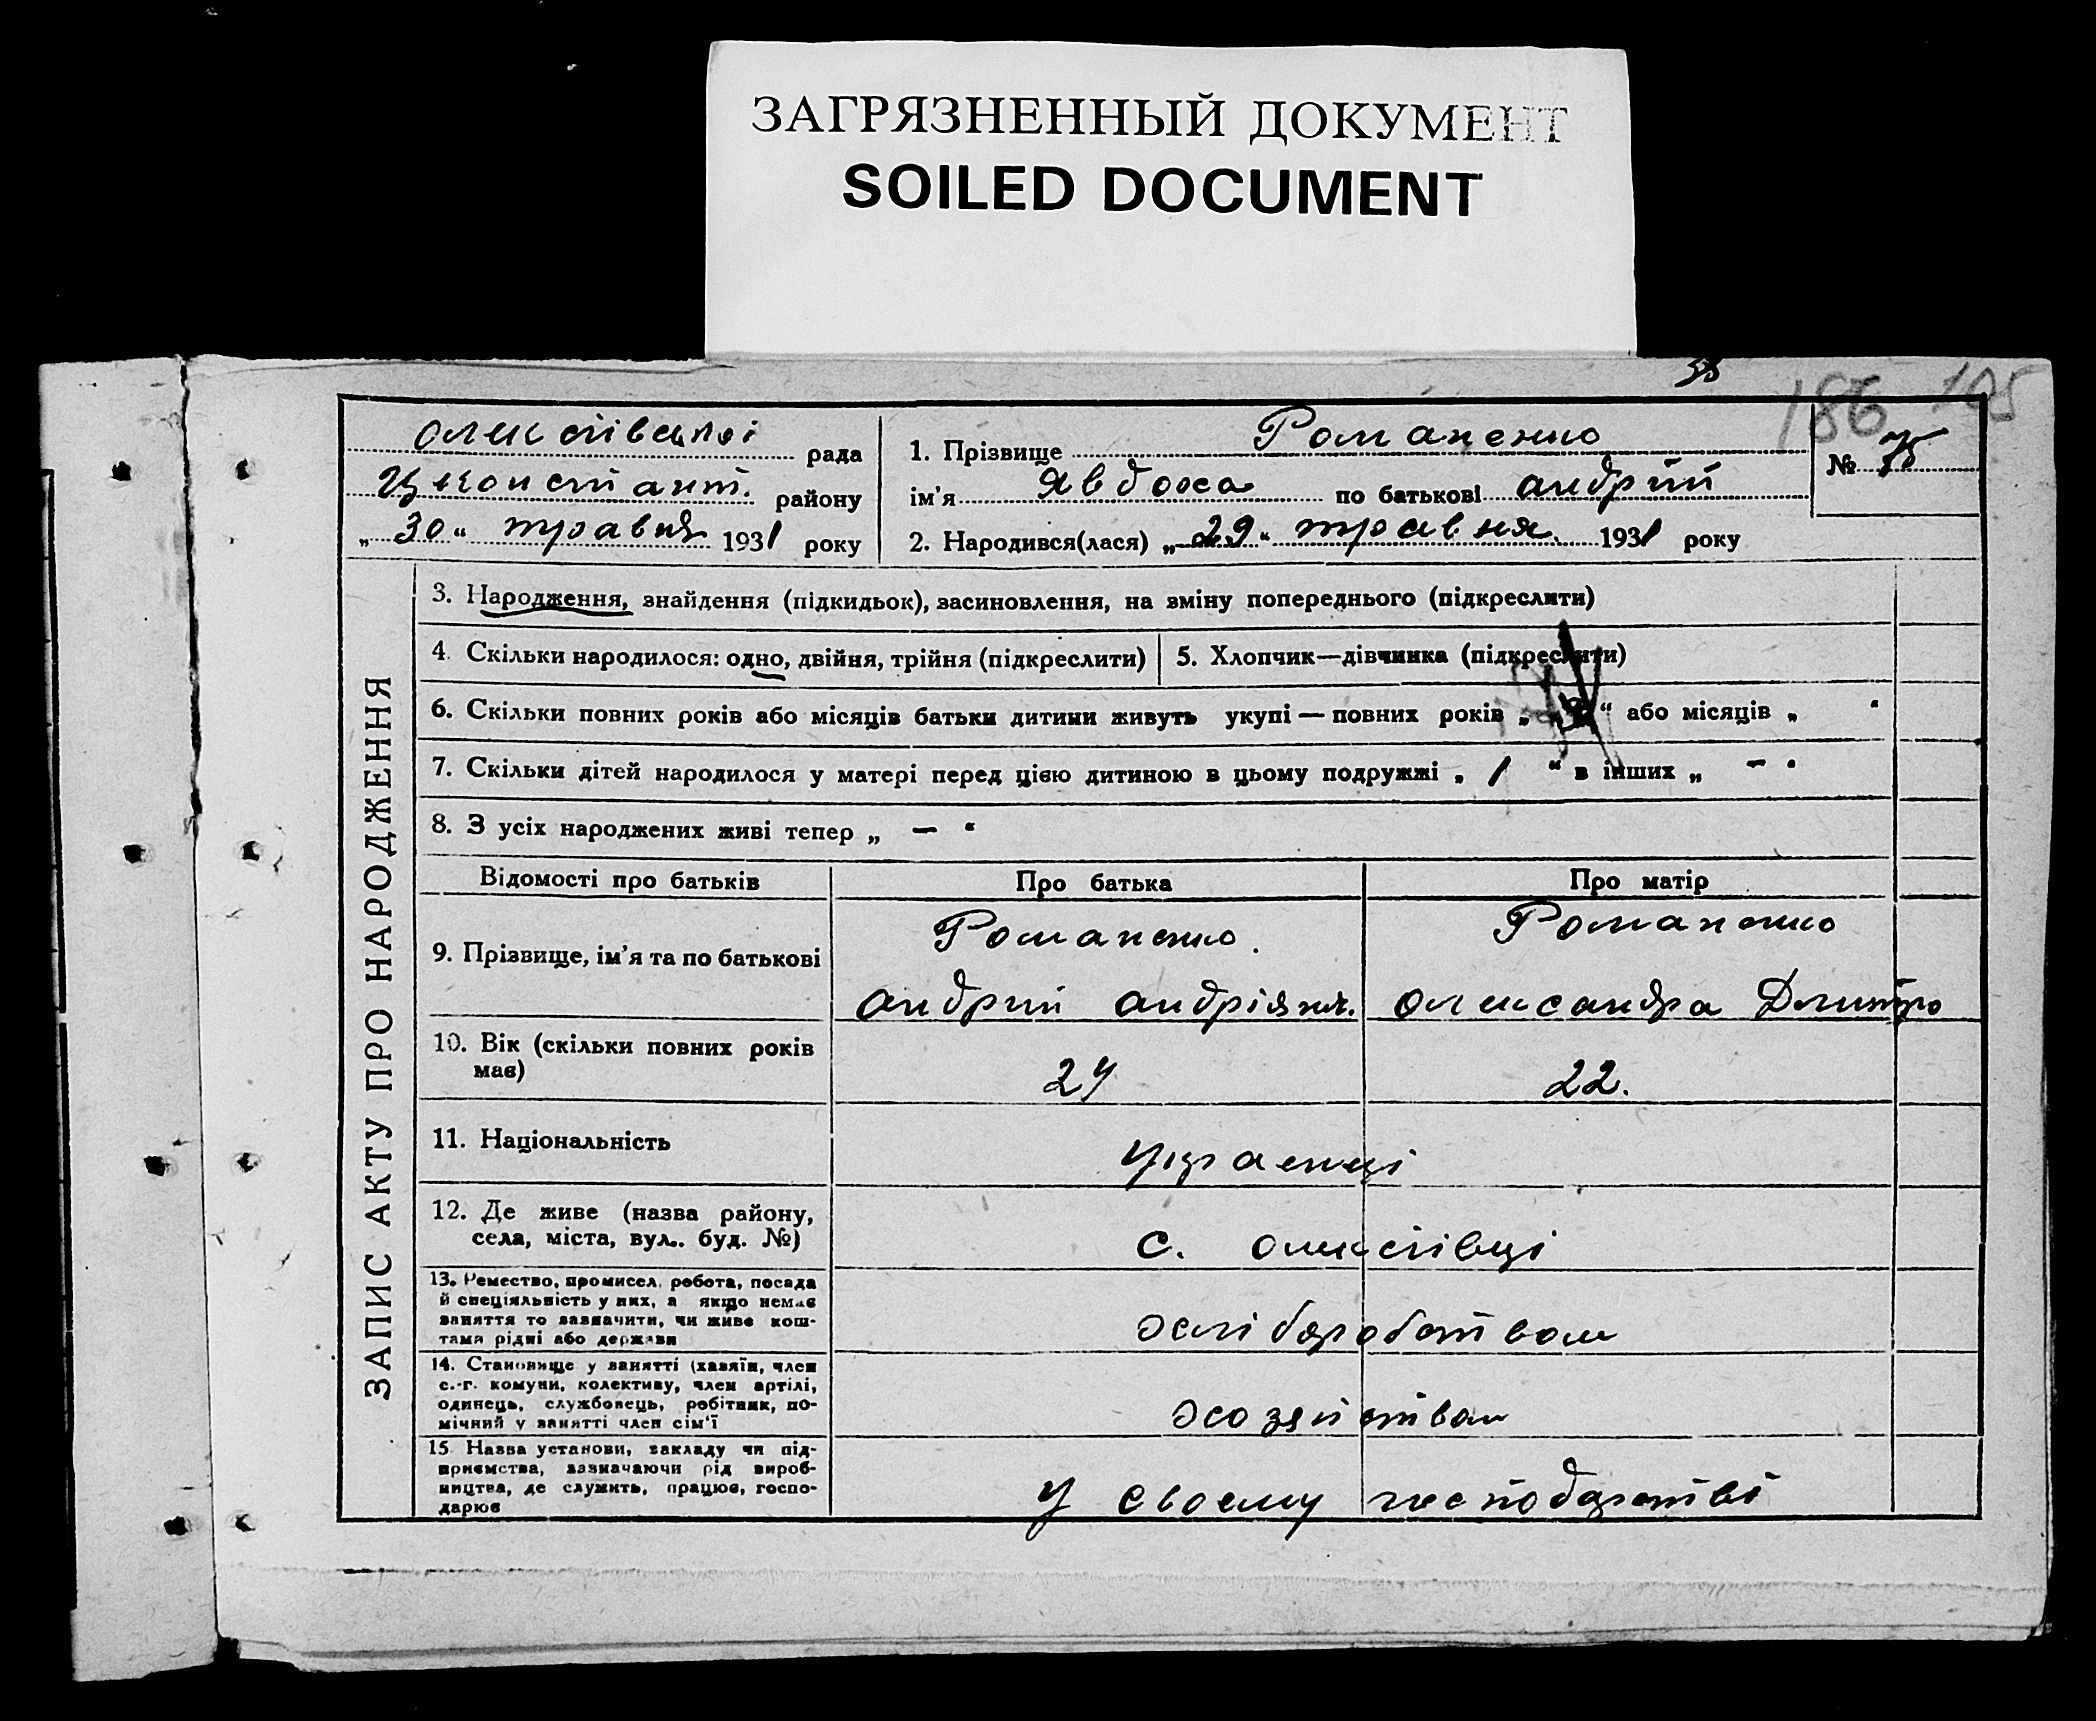 ЗАГРЯЗНЕННЫЙ ДОКУМЕНТ
SOILED DOCUMENT
186 105
рада
району
„30“ травня 1931 року
1. Прізвище Романенко
ім'я Явдоха по батькові Андрій
2. Народився(лася) „29“ травня 1931 року
№ 75
ЗАПИС АКТУ ПРО НАРОДЖЕННЯ
3. Народження, знайдення (підкидьок), засиновлення, на зміну попереднього (підкреслити)
4. Скільки народилося: одно, двійня, трійня (підкреслити)
5. Хлопчик—дівчинка (підкреслити)
6. Скільки повних років або місяців батьки дитини живуть укупі — повних років „ “ або місяців „ “
7. Скільки дітей народилося у матері перед цією дитиною в цьому подружжі „ 1 “ в інших „ — “
8. З усіх народжених живі тепер „ — “
Відомості про батьків
Про батька
Про матір
9. Прізвище, ім'я та по батькові
Романенко
Андрий
Романенко
Олександра Дмитро
10. Вік (скільки повних років має)
24
22.
11. Національність
Українці
12. Де живе (назва району,
села, міста, вул.. буд. №)
с. Олексієвці
13. Ремество, промисел, робота, посада
й спеціяльність у них, а якщо немає
заняття то зазначити, чи живе кош-
тами рідні або держави
хліборобством
14. Становище у занятті (хазяїн, член
с.-г. комуни, колективу, член артілі,
одинець, службовець, робітник, по-
мічний у занятті член сім'ї
хозяйством
15 Назва установи, закладу чи під-
приємства, зазначаючи рід вироб-
ництва, де служить, працює, госпо-
дарює
у своєму господарстві